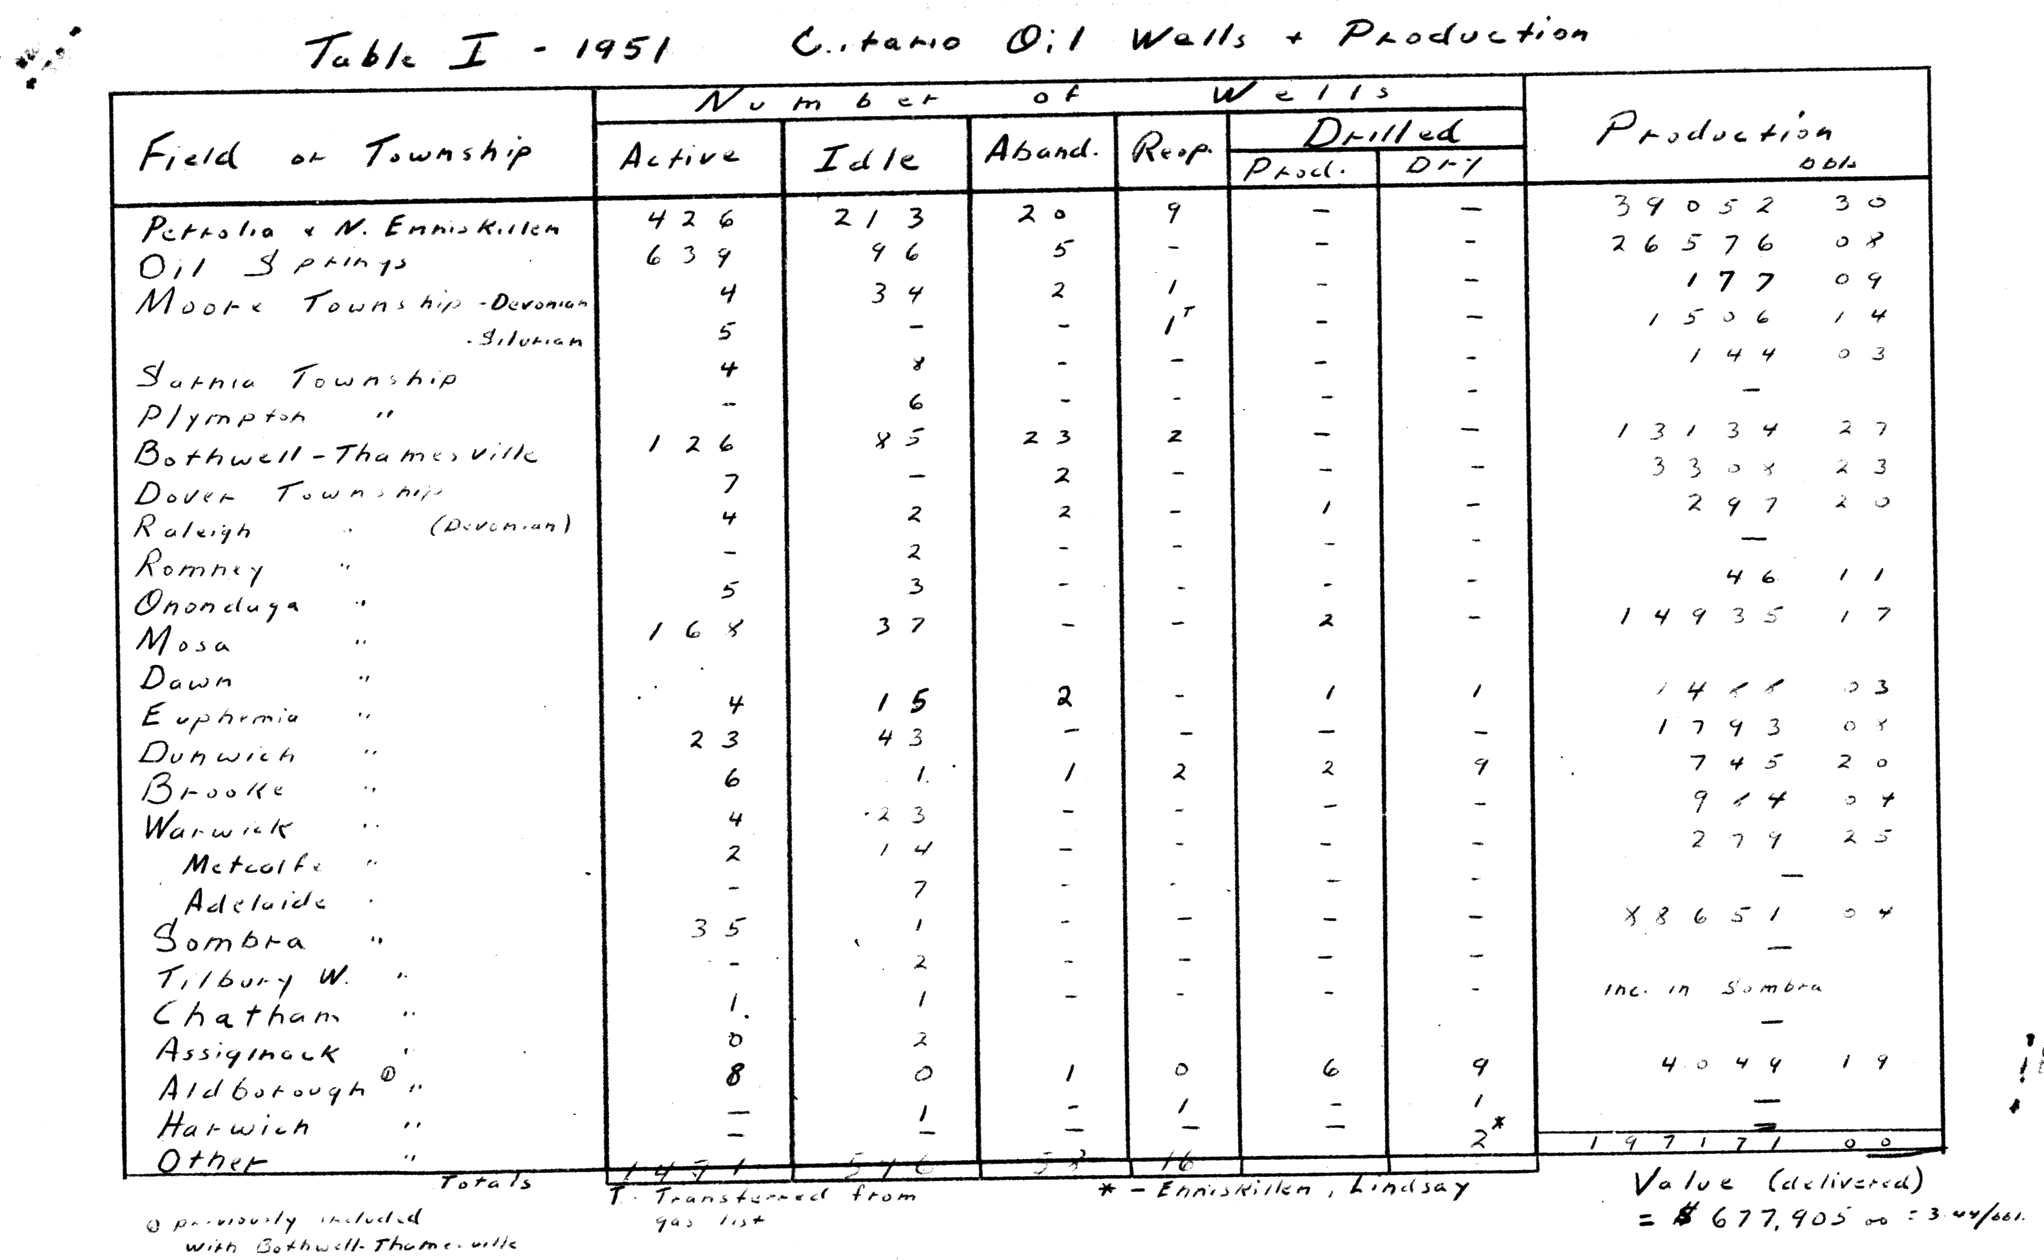 Table I - 1951 Ontario Oil Wells & Production
Number of Wells
Field or Township Active Idle Aband. Reop. Drilled Production
Prod. Dry bbls
Petrolia & N. Enniskillen 426 213 20 9 - - 39052 30
Oil Springs 639 96 5 - - - 26576 08
Moore Township - Devonian 4 34 2 1 - - 177 09
- Silurian 5 - - 1ᵀ - - 1506 14
Sarnia Township 4 8 - - - - 144 03
Plympton " - 6 - - - - -
Bothwell-Thamesville 126 85 23 2 - - 13134 27
Dover Township 7 - 2 - - - 3308 23
Raleigh " (Devonian) 4 2 2 - 1 - 297 20
Romney " - 2 - - - - -
Onondaga " 5 3 - - - - 46 11
Mosa " 168 37 - - 2 - 14935 17
Dawn "
Euphemia " 4 15 2 - 1 1 1488 03
Dunwich " 23 43 - - - - 1793 08
Brooke " 6 1 1 2 2 9 745 20
Warwick " 4 23 - - - - 984 04
Metcalfe " 2 14 - - - - 279 25
Adelaide " - 7 - - - - -
Sombra " 35 1 - - - - 88651 04
Tilbury W. " - 2 - - - - -
Chatham " 1 1 - - - - Inc. in Sombra
Assiginack " 0 2 -
Aldborough ① " 8 0 1 0 6 9 4049 19
Harwich " - 1 - 1 - 1 -
Other " - - - - - 2* -
Totals 1471 596 58 16 197171 00
T - Transferred from gas list
* - Enniskillen, Lindsay
① previously included
with Bothwell-Thamesville
Value (delivered)
= $ 677,905 00 = 3.44/bbl.